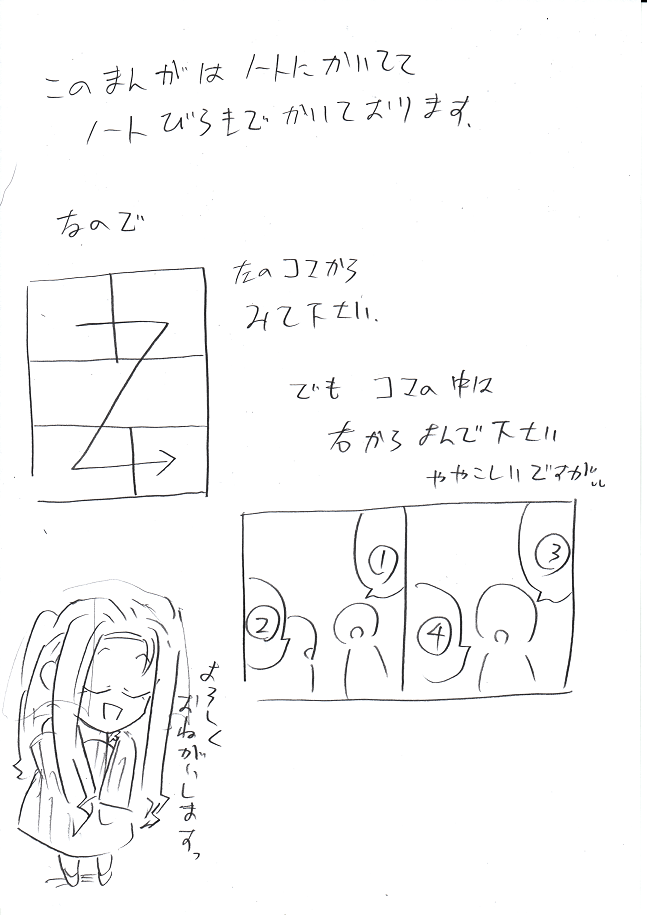 このまんがは ノートにかいてて
ノートびらきで かいております.
なので
左のコマから
みて下さい.
でも コマの中は
右からよんで下さい
ややこしいですが..
①
③
②
④
よろしく
おねがいします